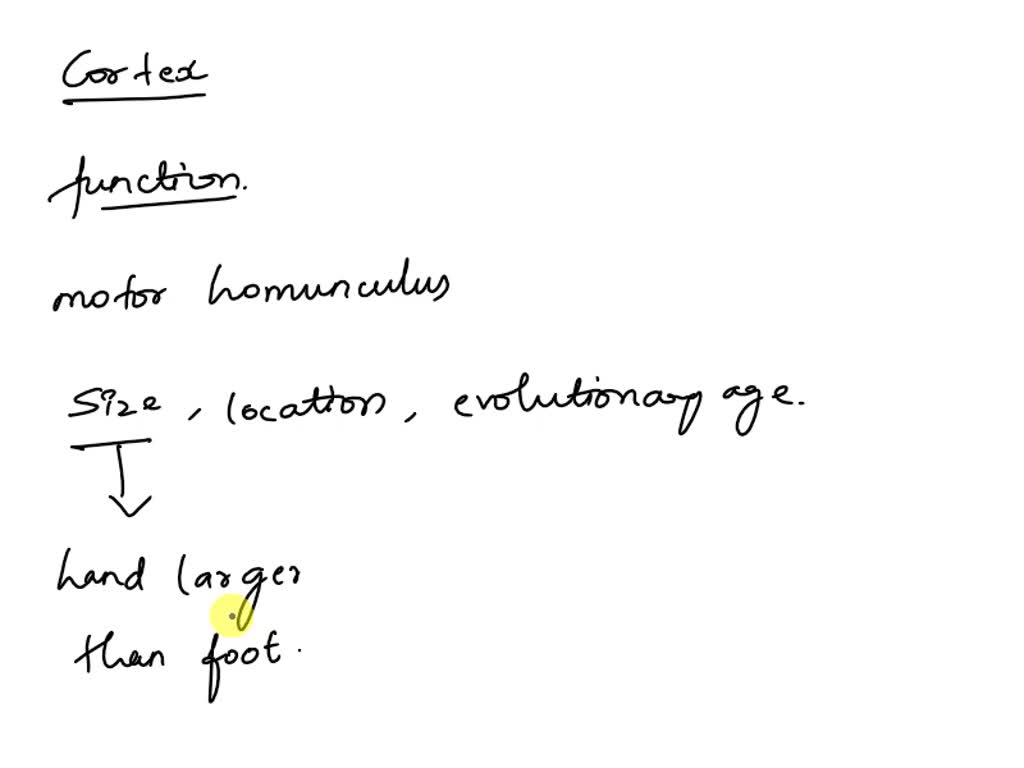 Cortex
function.
motor homunculus
Size, location, evolutionary age.
hand larger
than foot.